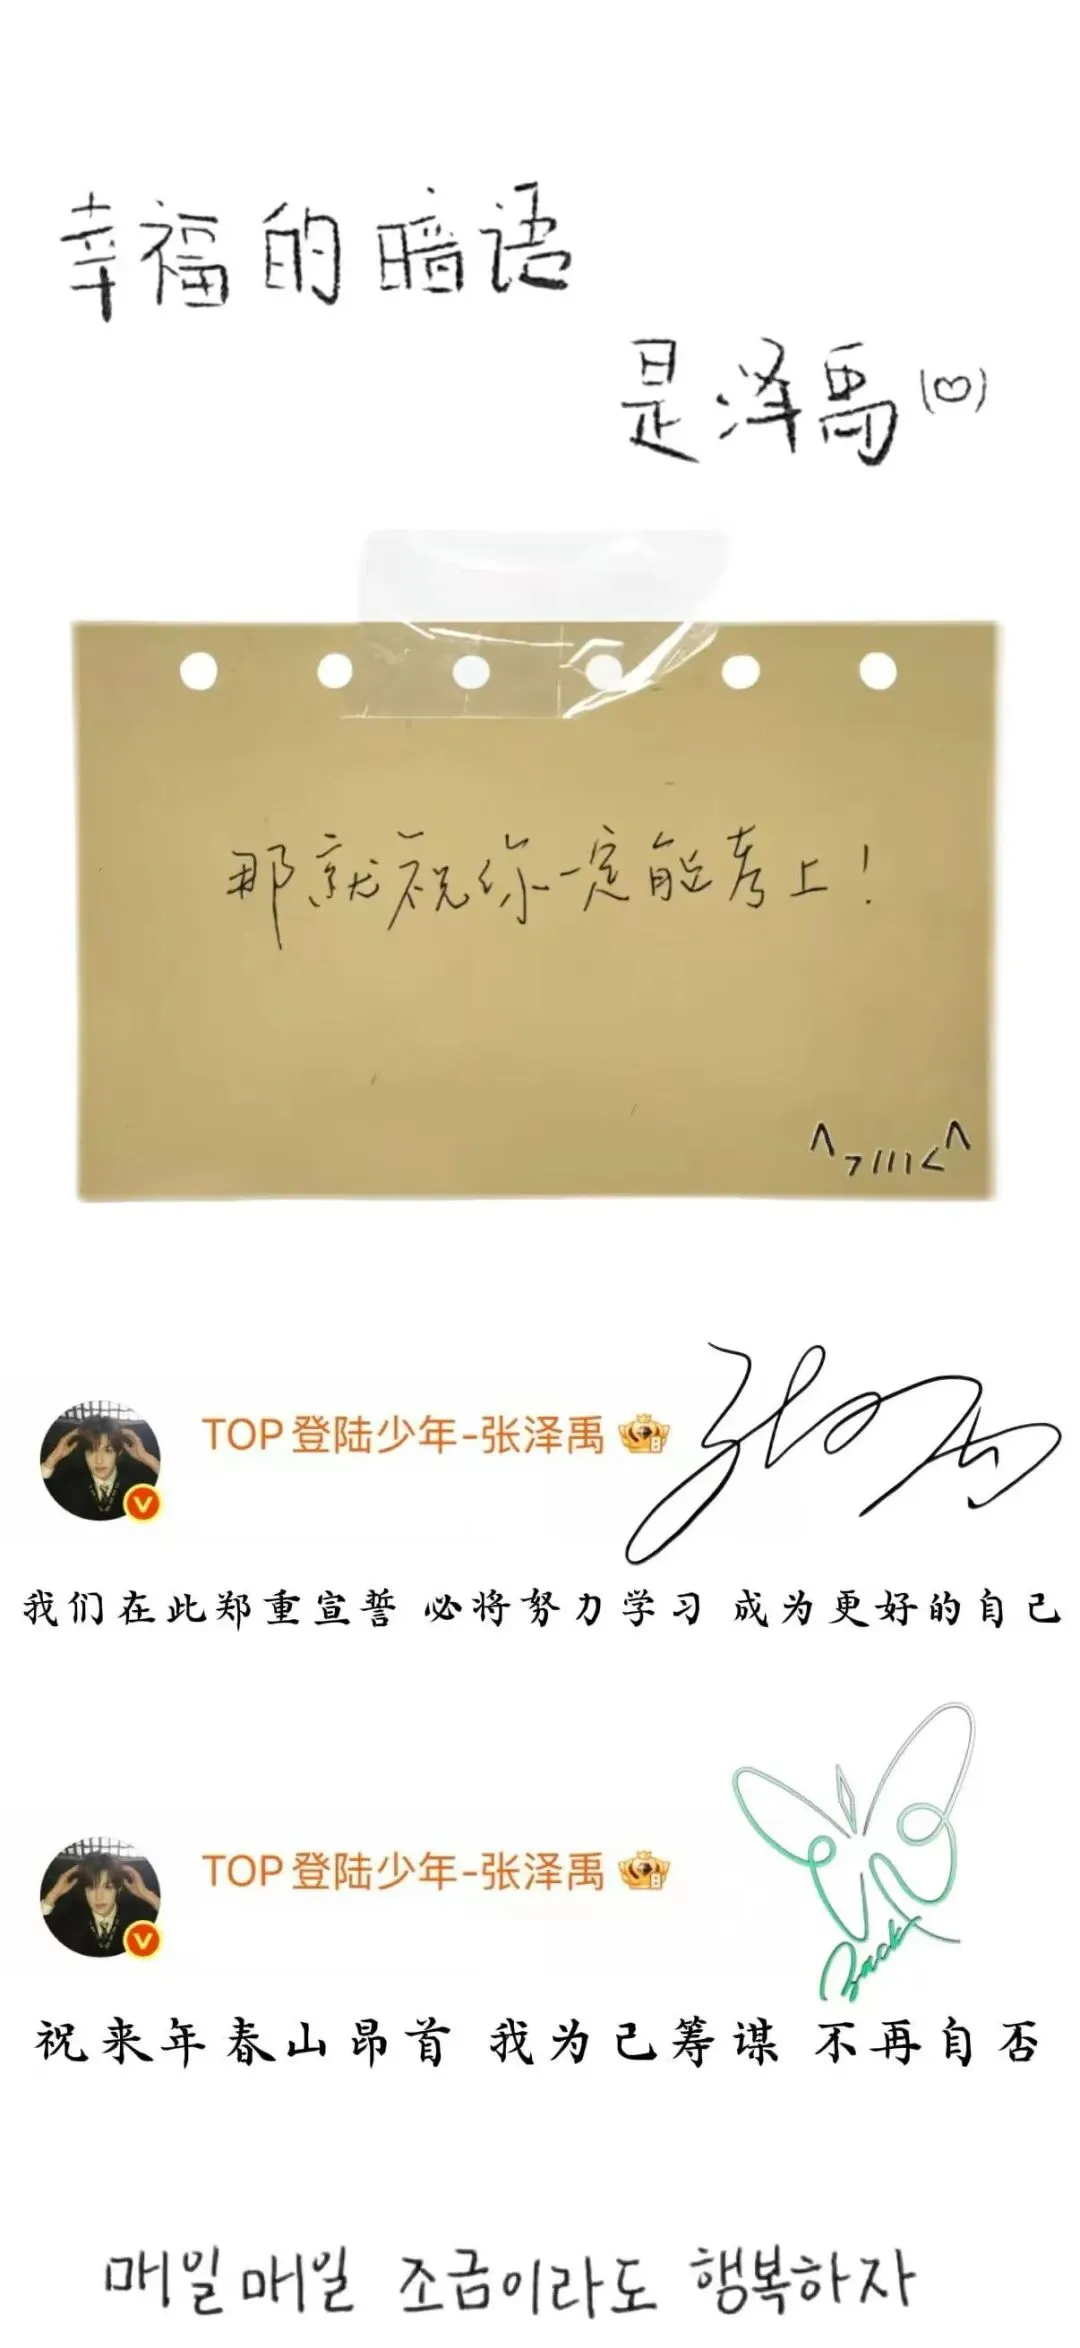 幸福的暗语
是泽禹(♡)
那就祝你一定能考上！
TOP登陆少年-张泽禹
我们在此郑重宣誓 必将努力学习 成为更好的自己
TOP登陆少年-张泽禹
Zack
祝来年春山昂首 我为己筹谋 不再自否
매일매일 조금이라도 행복하자